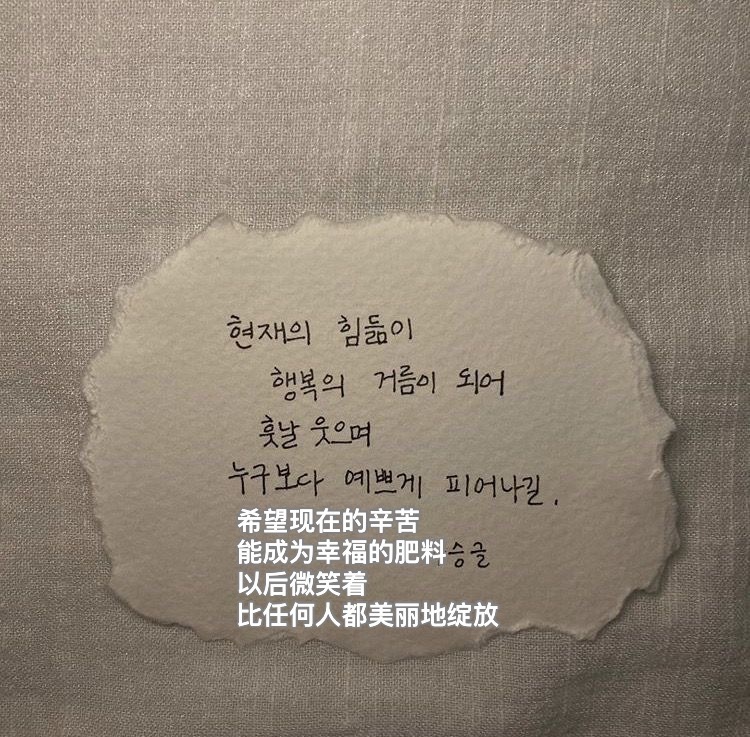 현재의 힘듦이
행복의 거름이 되어
훗날 웃으며
누구보다 예쁘게 피어나길.
希望现在的辛苦
能成为幸福的肥料
승글
以后微笑着
比任何人都美丽地绽放